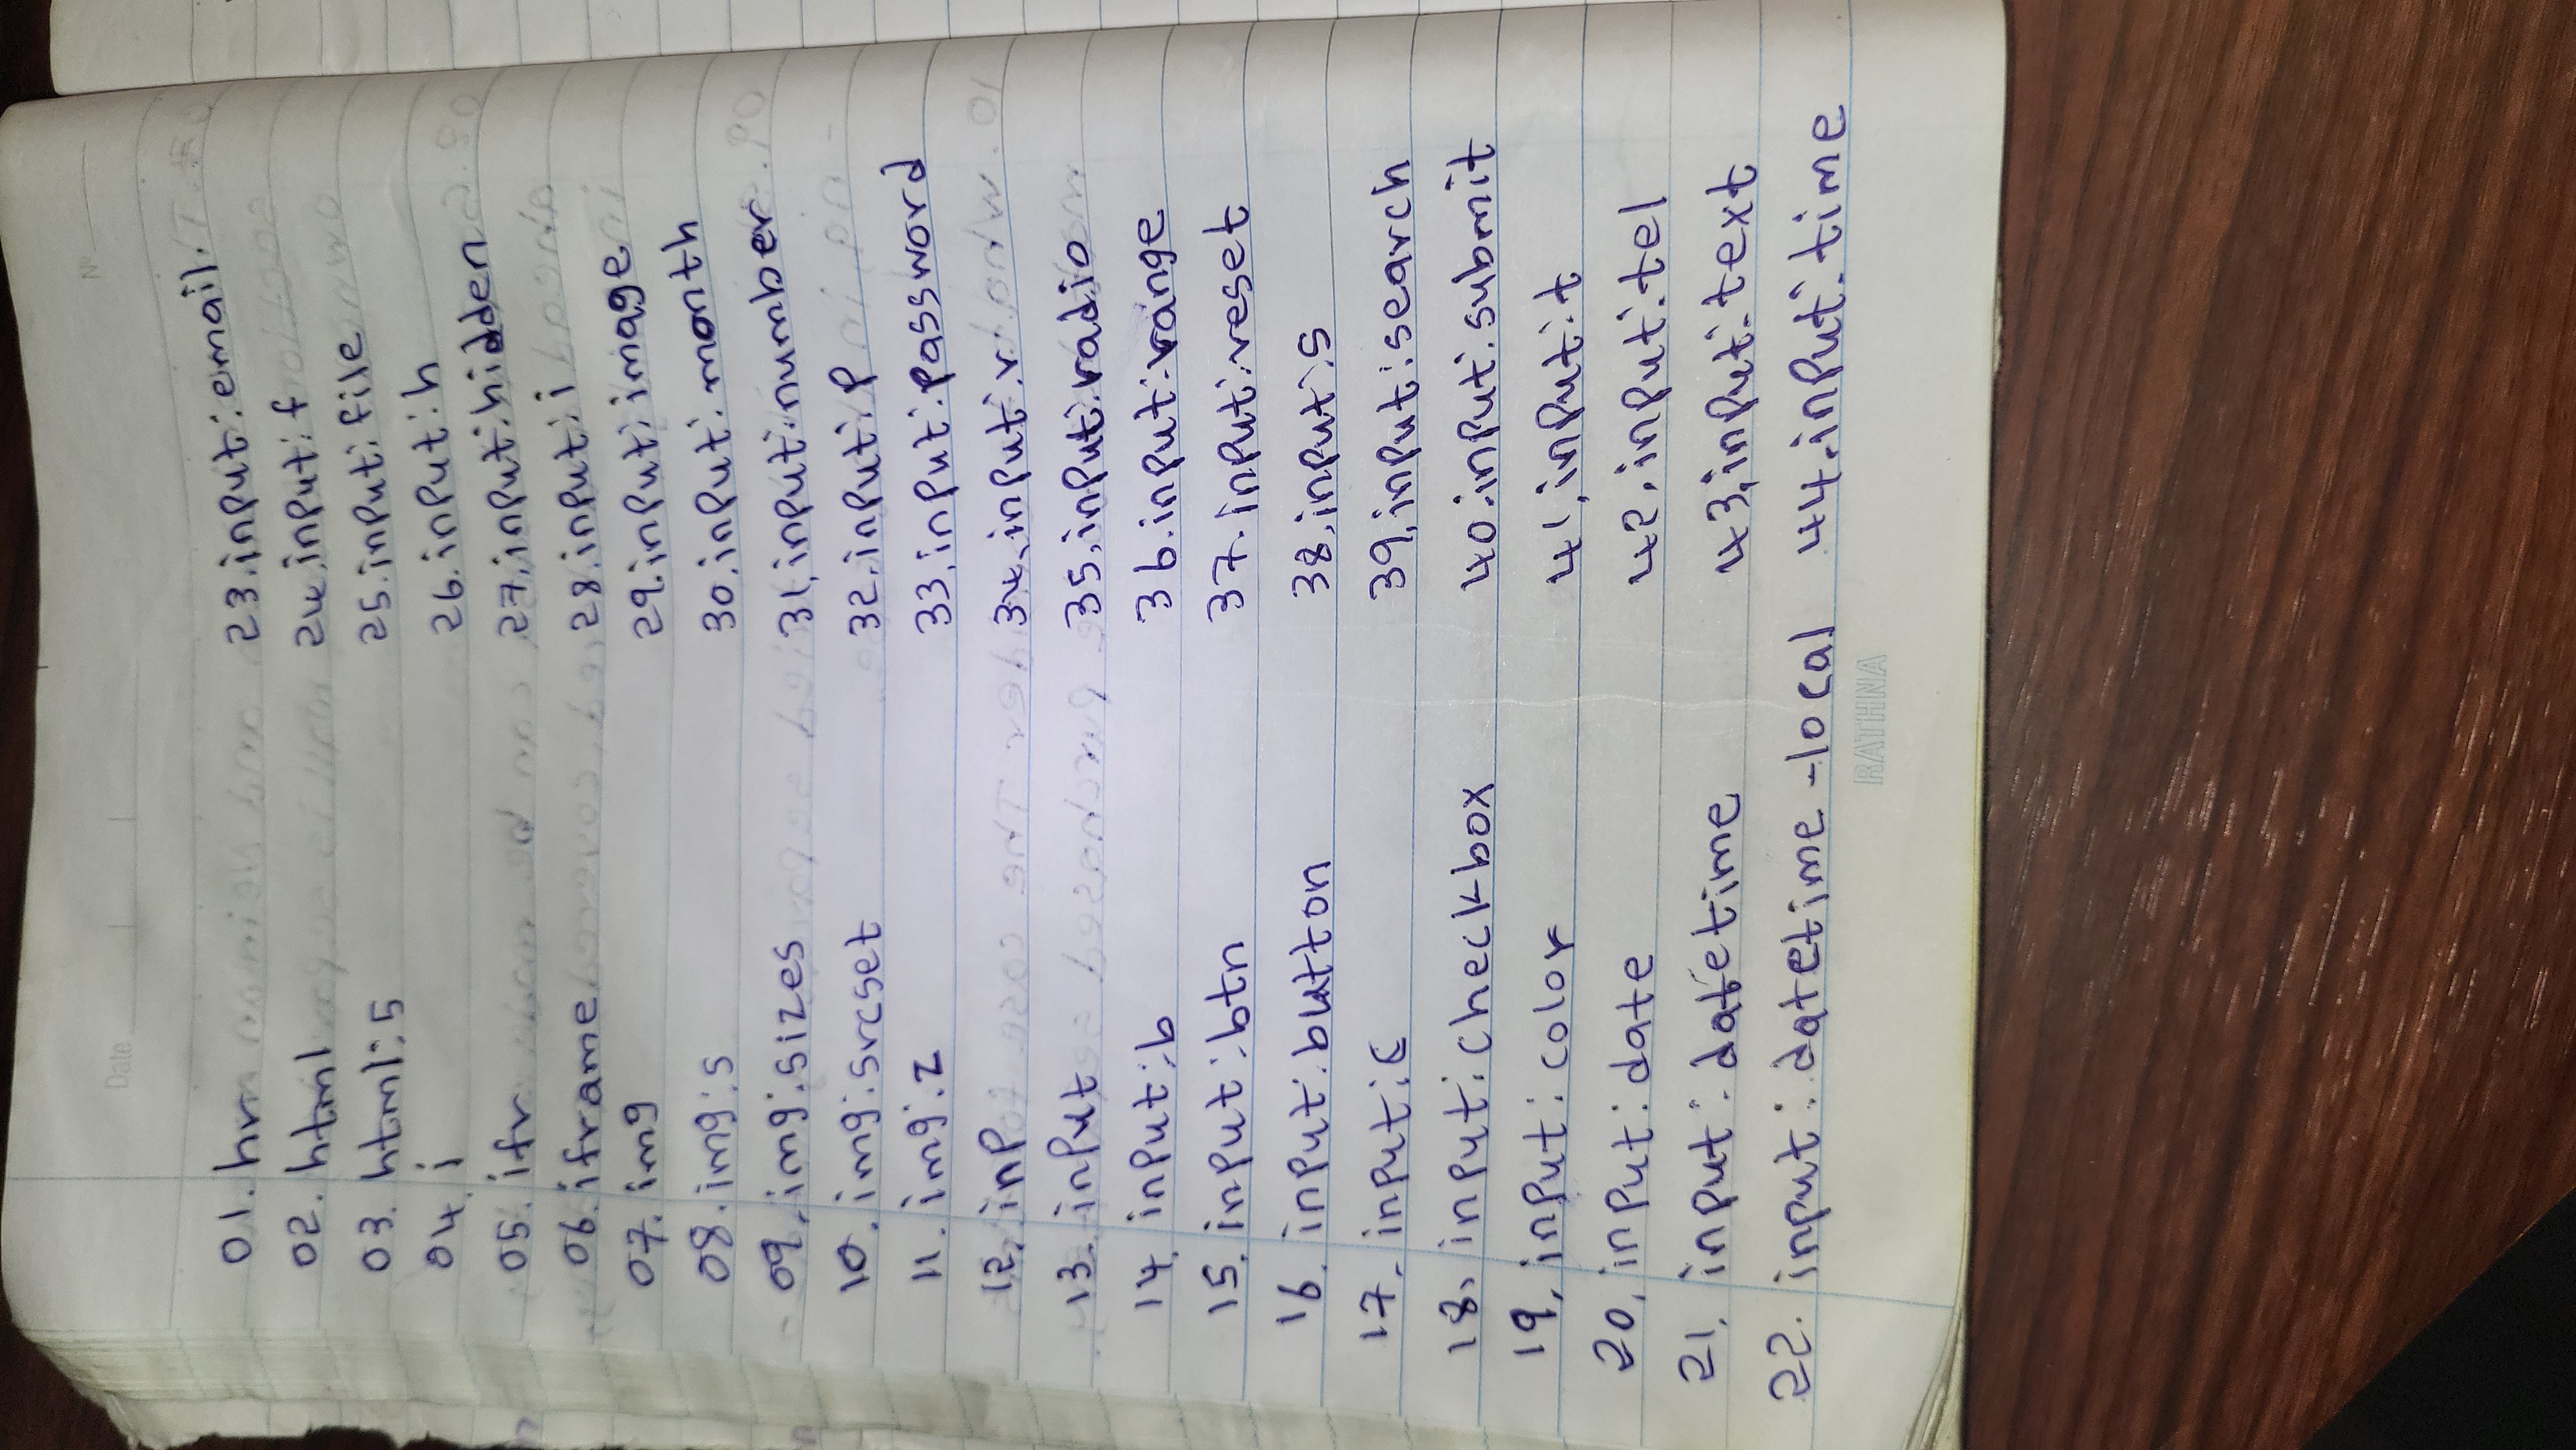 Date
No
01. hr
02. html
03. html:5
04. i
05. ifr
06. iframe
07. img
08. img:s
09. img:sizes
10. img:srcset
11. img:z
12. inp
13. input
14. input:b
15. input:btn
16. input:button
17. input:c
18. input:checkbox
19. input:color
20. input:date
21. input:datetime
22. input:datetime-local
23. input:email.
24. input:f
25. input:file
26. input:h
27. input:hidden
28. input:i
29. input:image
30. input:month
31. input:number
32. input:p
33. input:password
34. input:r
35. input:radio
36. input:range
37. input:reset
38. input:s
39. input:search
40. input:submit
41. input:t
42. input:tel
43. input:text
44. input:time
RATHNA